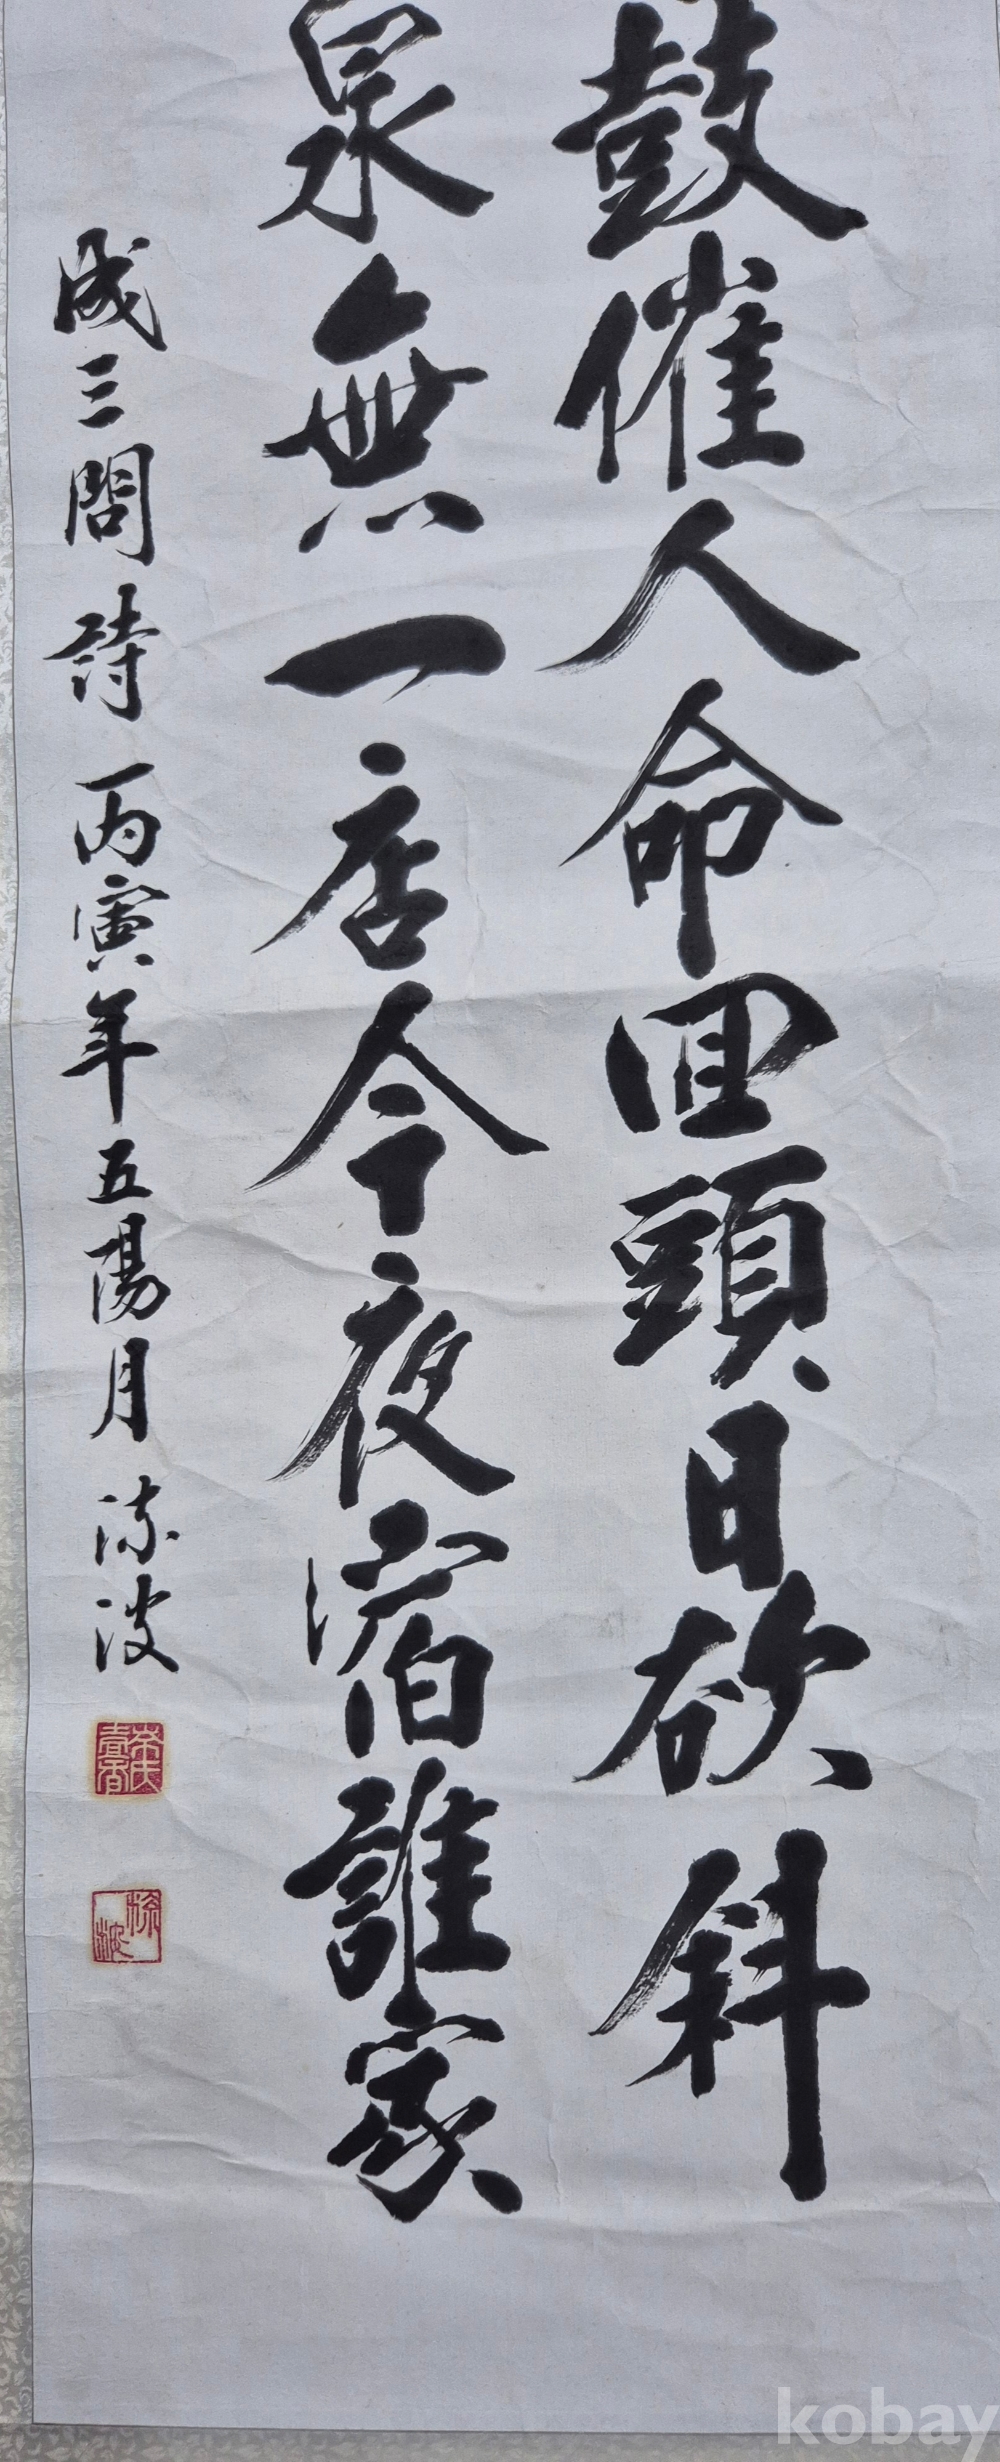 鼓催人命回頭日欲斜
泉無一店今夜宿誰家
成三問詩 丙寅年五陽月 流波
kobay